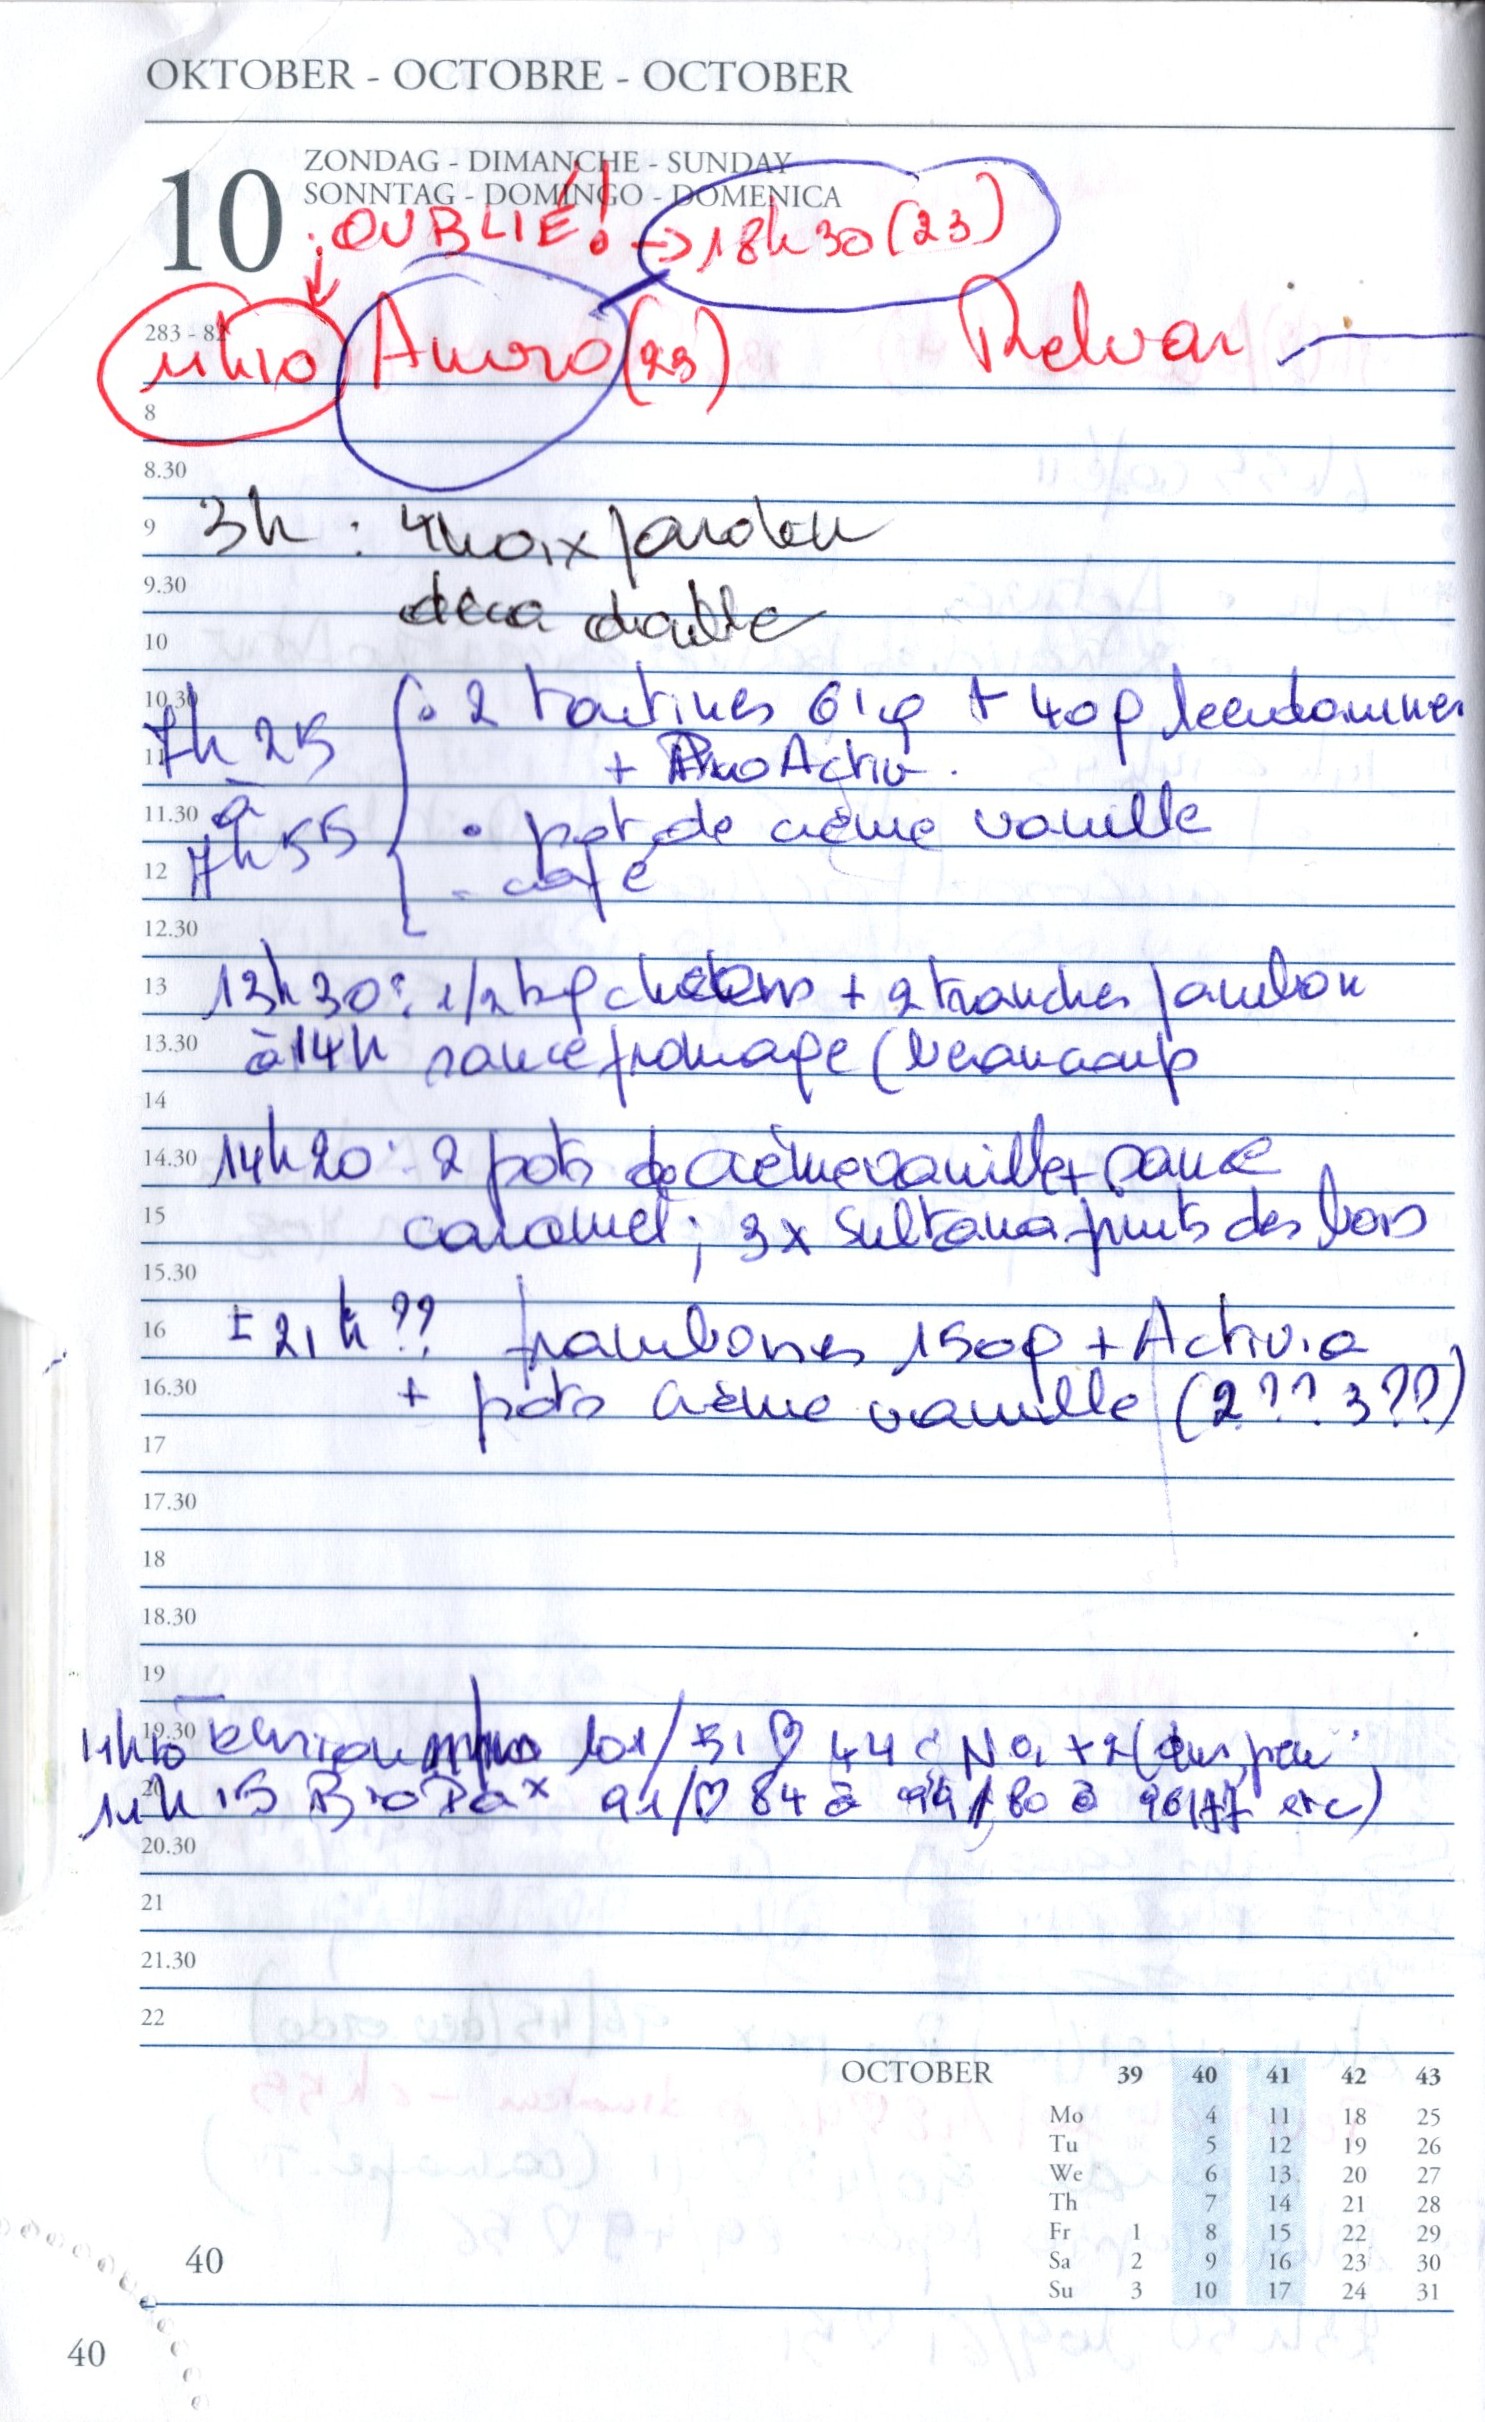 OKTOBER - OCTOBRE - OCTOBER
10
ZONDAG - DIMANCHE - SUNDAY
SONNTAG - DOMINGO - DOMENICA
OUBLIÉ! → 18h30 (23)
283 - 82
11h10 (23)
8
8.30
9 3h : 4 noix jardin
9.30 déca
10
10.30 7h25 • 2 tartines 61g + 40g leerdammer
11 + ProActiv.
11.30 à • pot de crème vanille
12 7h55 - café
12.30
13 13h30 : 1/2 kg + 2 tranches jambon
13.30 à 14h sauce fromage (beaucoup
14
14.30 14h20 : 2 pots de crème vanille + sauce
15 caramel ; 3x Sultana fruits des bois
15.30
16 ± 21h ?? framboises 150g + Activia
16.30 + pots crème vanille (2?? 3??)
17
17.30
18
18.30
19
19.30 11h10 tension 101/51 ♡ 44
20 11h15 91/♡ 84 à 80 à etc)
20.30
21
21.30
22
OCTOBER 39 40 41 42 43
Mo 4 11 18 25
Tu 5 12 19 26
We 6 13 20 27
Th 7 14 21 28
Fr 1 8 15 22 29
Sa 2 9 16 23 30
Su 3 10 17 24 31
40
40